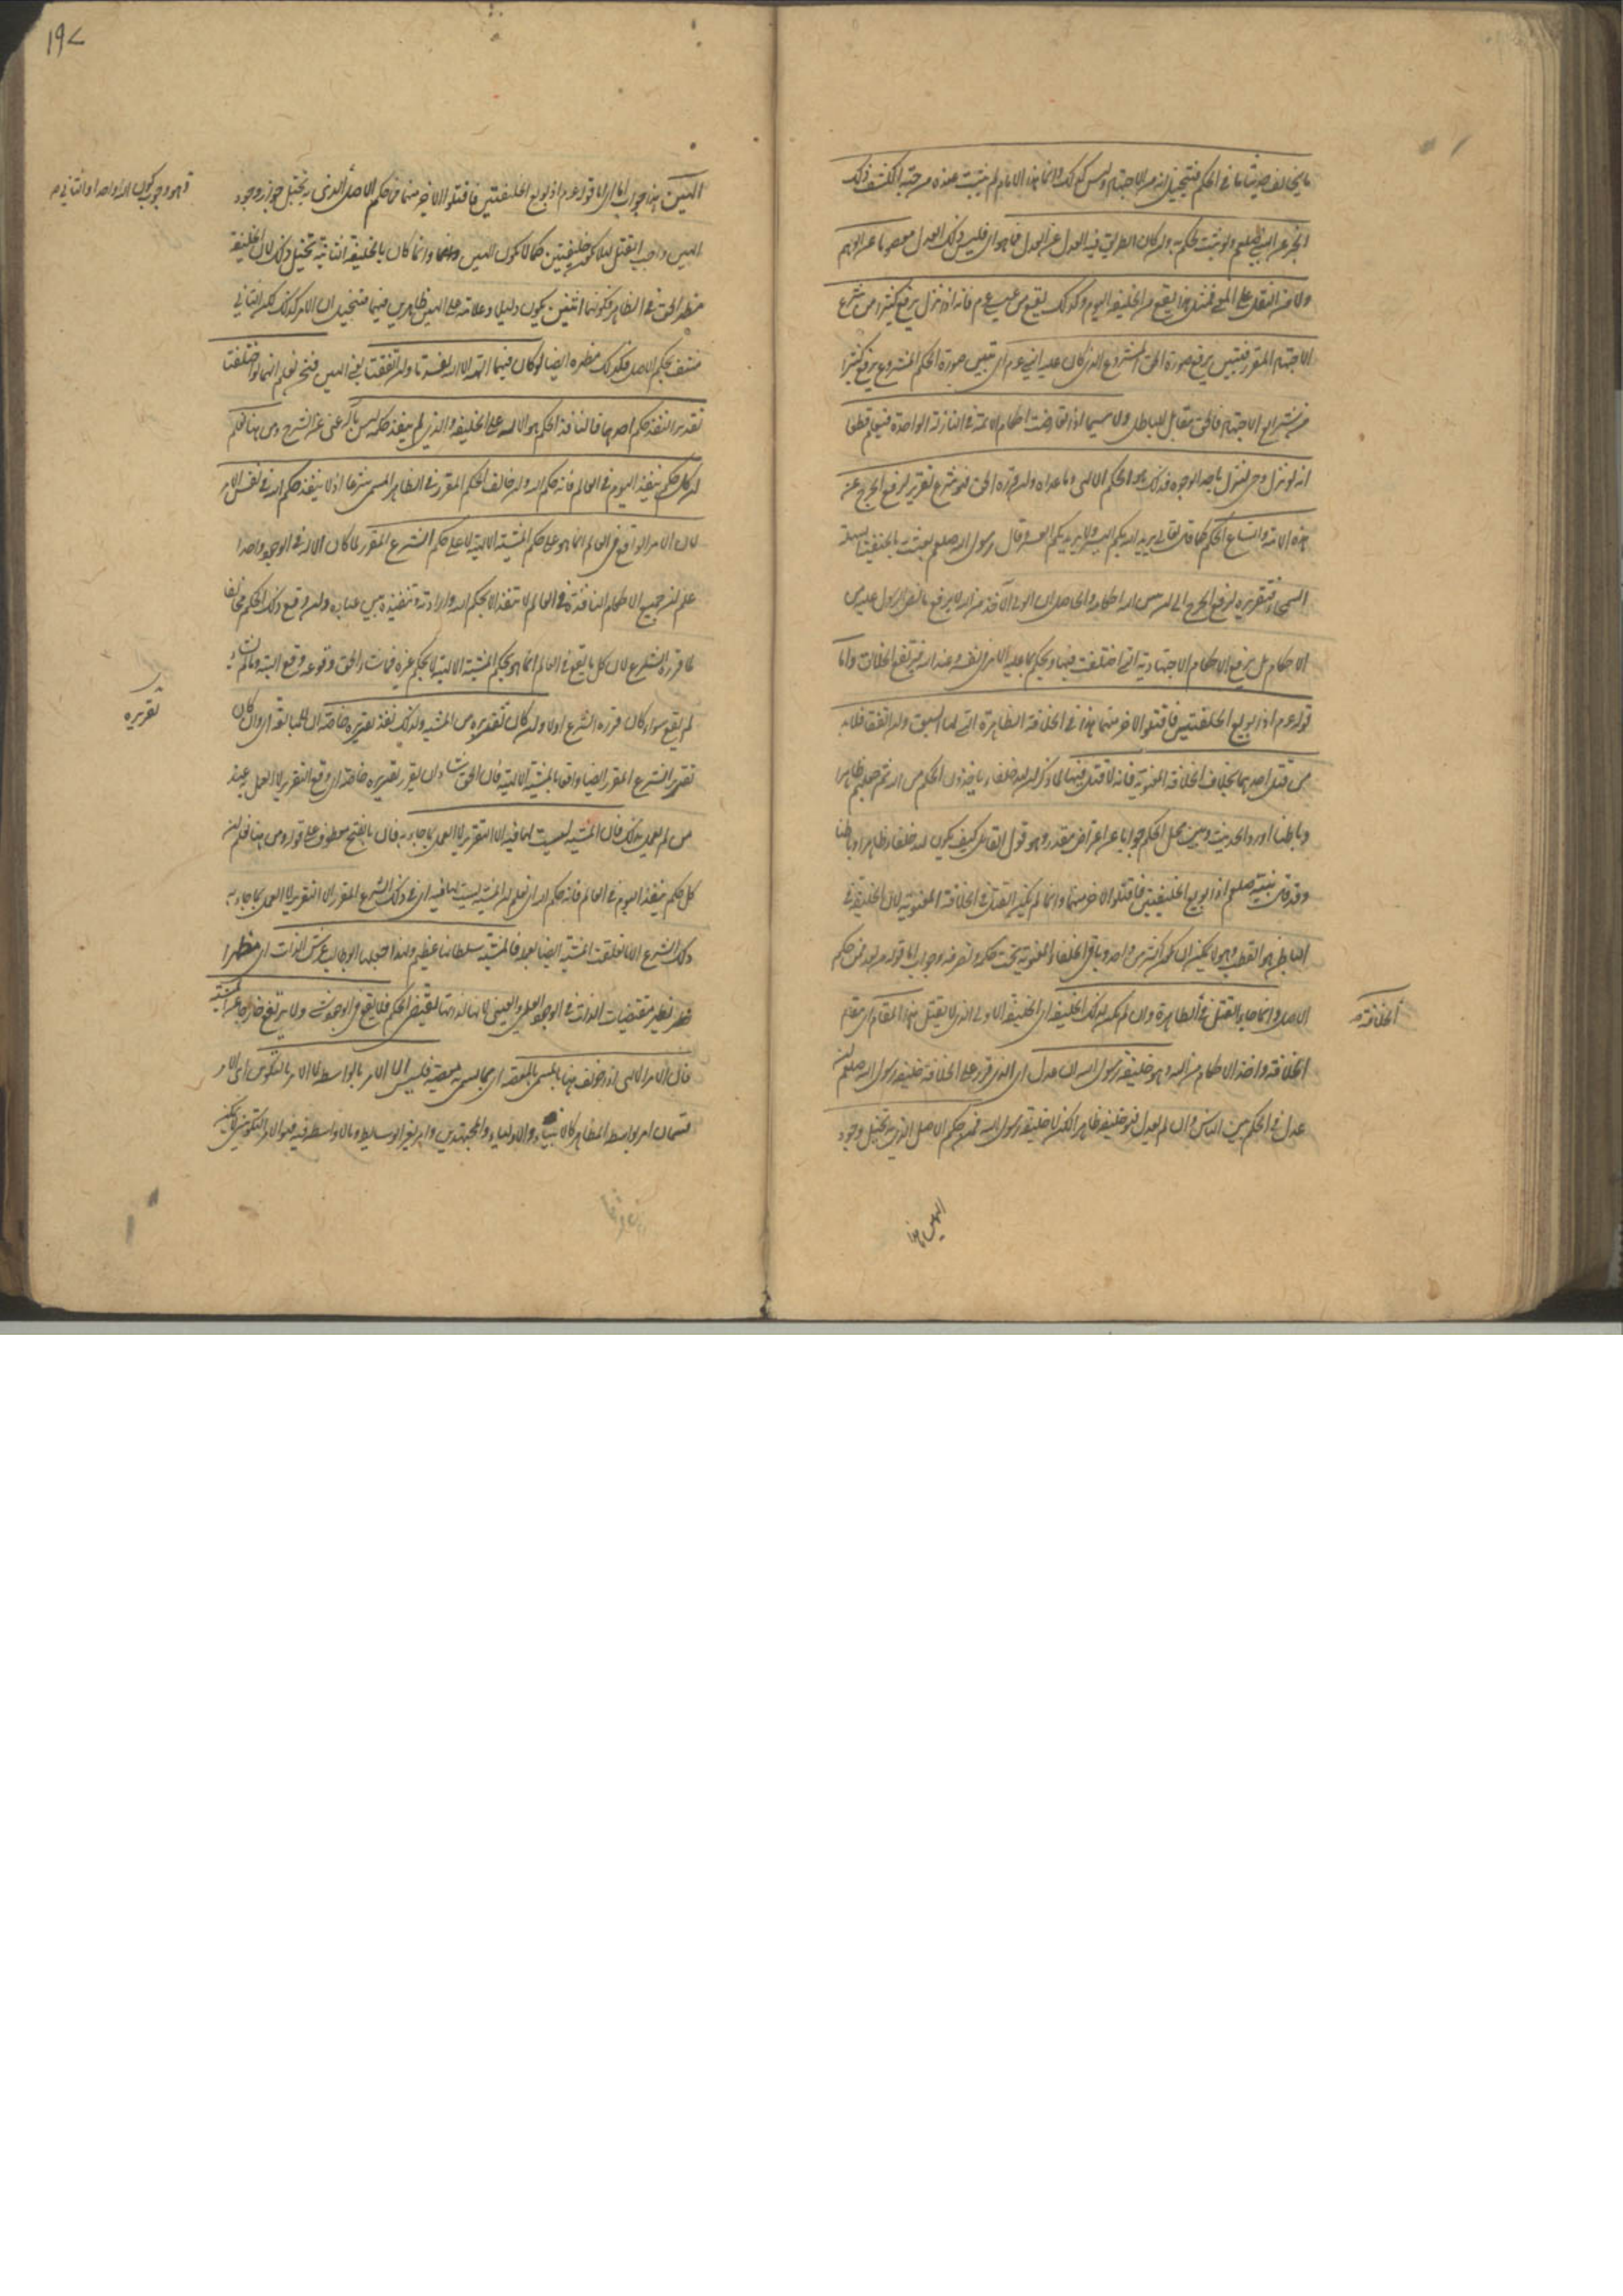 ما يخالف حديثا ما في الحكم فيتخيل انه من الاجتهاد وليس كذلك وانما هذا الامام لم يثبت عنده من جهة الكشف ذلك
الخبر عن النبي صلعم ولو ثبت لحكم به وان كان الطريق فيه العدل عن العدل فما هو اي فليس ذلك العدل معصوما عن الوهم
ولا من النقل على المعنى فمثل هذا يقع من الخليفة اليوم وكذلك يقع من عيسى عم فانه اذا نزل يرفع كثيرا من شرع
الاجتهاد المقرر فيبين برفعه صورة الحق المشروع الذي كان عليه النبي عم اي تبين صورة الحكم المشروع برفع كثيرا
من شرائع الاجتهاد فالحق مقابل للباطل ولا سيما اذا تعارضت احكام الائمة في النازلة الواحدة فيعلم قطعا
انه لو نزل وحي لنزل باحد الوجوه فذلك هو الحكم الالهي وما عداه وان قرره الحق فهو شرع تقرير لرفع الحرج عن
هذه الامة واتساع الحكم كما قال تعالى يريد الله بكم اليسر ولا يريد بكم العسر وقال رسول الله صلعم بعثت بالحنيفية السهلة
السمحاء فتقريره لرفع الحرج
الاحكام بل يرفع الاحكام الاجتهادية التي اختلفت فيها ويحكم بما عليه الامر في نفسه عند الله فيرتفع الخلاف واما
قوله عم اذا بويع الخليفتين فاقتلوا الاخر منهما هذا في الخلافة الظاهرة التي لها السيف وان اتفقا فلا بد
من قتل احدهما بخلاف الخلافة المعنوية فانه لا قتل فيها لما ذكر ان لله خلفاء ياخذون الحكم من الله تم حكمهم ظاهرا
وباطنا اورد الحديث وبين محل الحكم جوابا عن اعتراض مقدر وهو قول القائل كيف يكون لله خلفاء ظاهرا وباطنا
وقد قال نبيه صلعم اذا بويع الخليفتين فاقتلوا الاخر منهما وانما لم يكن القتل في الخلافة المعنوية لان الخليفة في
الباطن هو القطب وهو لا يمكن ان يكون اكثر من واحد وباقي الخلفاء المعنوية تحت حكمه وتصرفه وجواب اما قوله بعد فمن حكم
الاصل وانما جاء القتل في الظاهرة وان لم يكن لذلك الخليفة اي الخليفة الاولى الذي لا يقتل هذا المقام اي مقام
الخلافة
الخلافة واخذ الاحكام من الله وهو خليفة رسول الله ان عدل اي الذي قرر على الخلافة خليفة رسول الله صلعم ان
عدل في الحكم بين الناس وان لم يعدل فهو خليفة ظاهرا لكن لا خليفة رسول الله فمن حكم الاصل الذي به تخيل وجود
الهين هذا
١٩٧
الهين هذا جواب اما اي اما قوله عم اذا بويع الخليفتين فاقتلوا الاخر منهما فمن حكم الاصل الذي به تخيل جواز وجود
الهين واجب القتل لئلا يكون خليفتين كما لا يكون الهين وانما كان بالخليفة الثانية تخيل ذلك لان الخليفة
مظهر الحق في الظاهر فكونهما اثنين يكون دليلا وعلامة على الهين ظاهرين فيهما فتخيل ان الامر كذلك لكن الثاني
منتف بحكم الاصل فكذلك مظهره ايضا لو كان فيهما الهة الا الله لفسدتا وان اتفقتا يعني الهين فنحن نعلم انهما لو اختلفتا
تقديرا لنفذ حكم احدهما فالنافذ الحكم هو الاله على الحقيقة والذي لم ينفذ حكمه ليس باله غني عن الشرح ومن هنا نعلم
ان كل حكم ينفذ اليوم في العالم فانه حكم الله وان خالف الحكم المقرر في الظاهر المسمى شرعا اذ لا ينفذ حكم الا لله في نفس الامر
لان الامر الواقع في العالم انما هو على حكم المشيئة الالهية لا على حكم الشرع المقرر لما كان الاله في الوجود واحدا
علم ان جميع الاحكام النافذة في العالم لا تنفذ الا بحكم الله وارادته وتنفيذه بين عباده وان وقع ذلك الحكم مخالفا
لما قرره الشرع لان كل ما يقع في العالم انما هو بحكم المشيئة الالهية لا بحكم غيره فما شاء الحق وقوعه وقع البتة وما لم يشاء
لم يقع سواء كان قرره الشرع اولا وان كان تقريره من المشيئة ولذلك نفذ تقريره خاصة
تقريره
تقرير الشرع المقرر ايضا واقعا بالمشيئة الالهية فان الحق شاء ان يقرر تقريره خاصة اي وقع التقرير لا العمل به عند
من لم يعمل بذلك فان المشيئة ليست لها فيه الا التقرير لا العمل بما جاء به فان بالفتح معطوف على قوله ومن هنا نعلم ان
كل حكم ينفذ اليوم في العالم فانه حكم الله اي نعلم ان المشيئة ليست لها فيه اي في ذلك الشرع المقرر الا التقرير لا العمل بما جاء به
ذلك الشرع الا اذا تعلقت المشيئة ايضا بعمله فالمشيئة سلطانها عظيم ولهذا جعلها ابو طالب عرش الذات اي مظهرا
مظهر مقتضيات الذات في الوجود العلمي والعيني لانها لذاتها تقتضي الحكم فلا يقع في الوجود شئ ولا يرتفع خارجا عن المشيئة
فان الامر الالهي اذا خولف هنا بالمسمى بالمعصية اي بما يسمى معصية فليس الا الامر بالواسطة لا الامر التكويني اي الامر
قسمان امر بواسطة المظاهر كالانبياء والاولياء والمجتهدين وامر بغير الوسايط